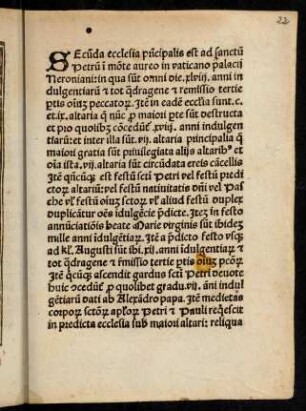 22
SEcūda ecclesia pn̄cipalis est ad sanctū
Petrū ī mōte aureo in vaticano palacij
Neroniani: in qua sūt omni die. xlviij. anni in
dulgentiarū ⁊ tot q̄dragene ⁊ remissio tertie
ptis oīuȝ peccatoꝝ. Itē in eadē eccīa sunt. c.
et. ix. altaria q̄ nūc ꝓ maiori pte sūt destructa
et pro quolibȝ cōcedūtᷣ. xviij. anni indulgen
tiarū: et inter illa sūt. vij. altaria principalia q̄
maiori gratia sūt priuilegiata alijs altaribꝰ et
oīa ista. vij. altaria sūt circūdata ereis cācellis
Itē qn̄cūqȝ est festū sctī Petri vel festū predi
ctoꝝ altariū: vel festū natiuitatis dn̄i vel Pa
sche vl̓ festū oīuȝ sctoꝝ vl̓ aliud festū duplex
duplicātur oēs īdulgēcie p̄dicte. Iteȝ in festo
annūciatiōis beate Marie virginis sūt ibideȝ
mille anni īdulgētiarū. Itē a p̄dicto festo vsqȝ
ad kl̓. Augusti sūt ibi. xij. anni īdulgētiarꝝ ⁊
tot q̄dragene ⁊ r̄missio tertie ptis oīuȝ pctōꝝ.
Itē qn̄cūqȝ ascendit gardus sctī Petri deuote
huic ꝯcedūtᷣ ꝓ quolibet gradu. vij. āni indul
gētiarū dati ab Alexādro papa. Itē medietas
corpoꝝ sctōꝝ apl̓oꝝ Petri ⁊ Pauli reqͥescit
in predicta ecclesia sub maiori altari: reliqua